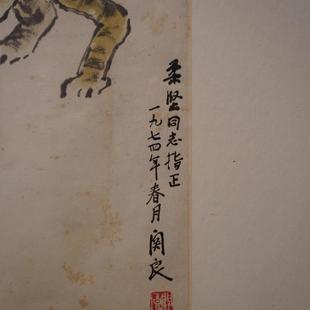 柔坚同志指正
一九七四年春月 関良